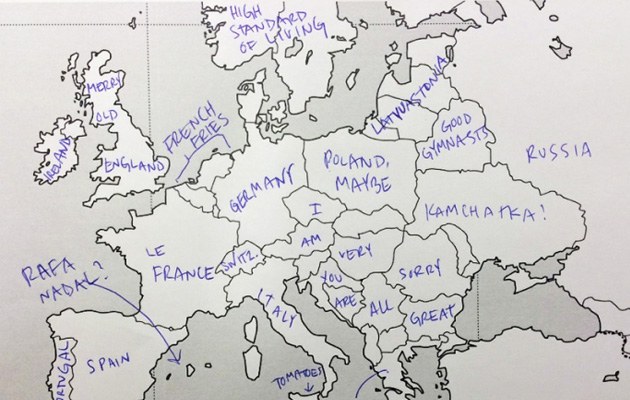 HIGH
STANDARD
OF LIVING
MERRY
OLD
ENGLAND
IRELAND
FRENCH
FRIES
LATVIASTONIA
GOOD
GYMNASTS
RUSSIA
GERMANY
POLAND,
MAYBE
I
KAMCHATKA!
LE
FRANCE
SWITZ.
AM
VERY
SORRY
RAFA
NADAL?
ITALY
YOU
ARE
ALL
GREAT
PORTUGAL
SPAIN
TOMATOES